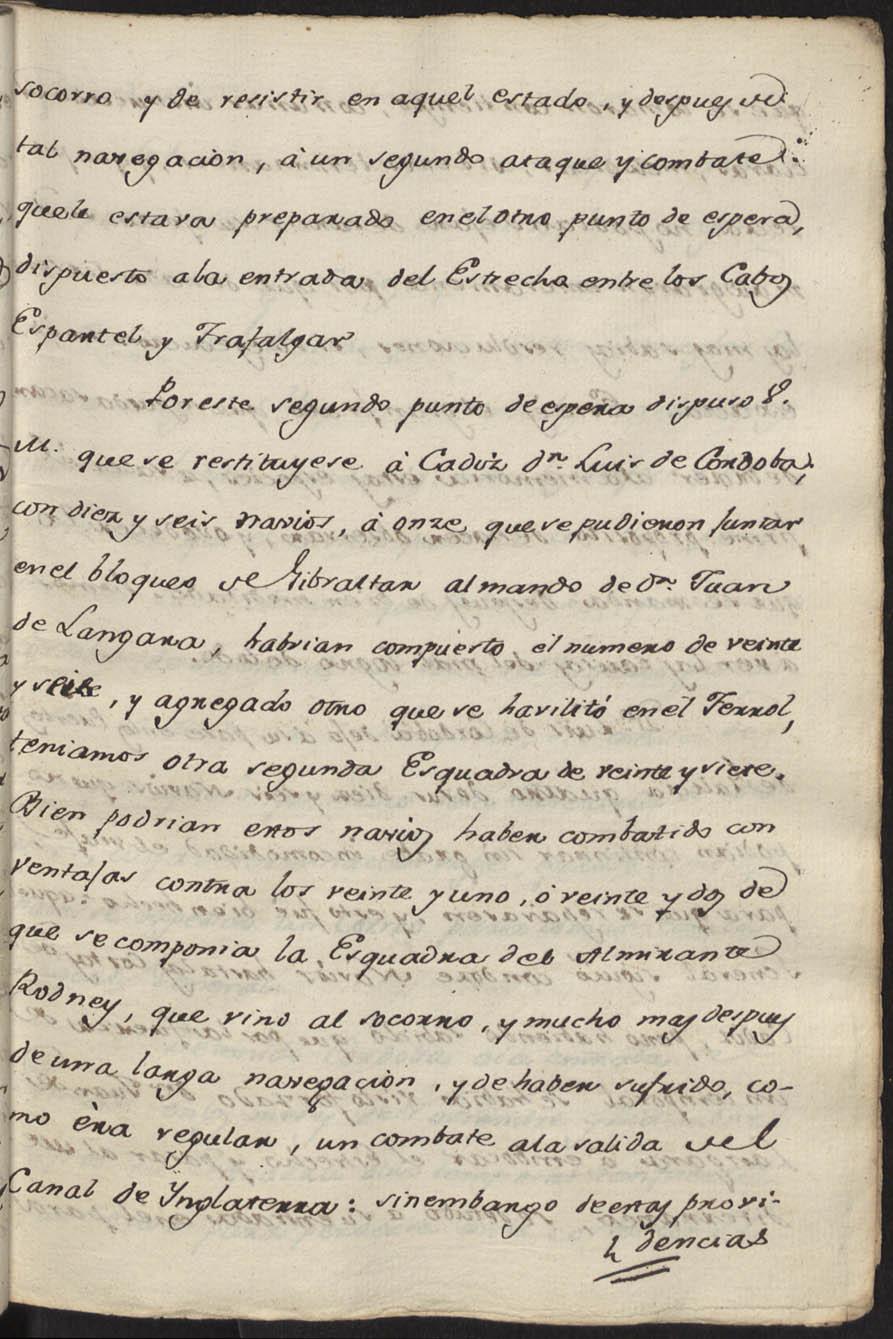 socorro y de resistir en aquel estado, y despues de
tal navegacion, á un segundo ataque y combate
quele estava preparado enel otro punto de espera,
dispuesto ala entrada del Estrecho entre los Cabos
Espartel y Trafalgar
Por este segundo punto de espera dispuso S.
M. que se restituyese á Cadiz dn. Luis de Cordoba,
con diez y seis navios, á onze que se pudieron juntar
en el bloqueo de Gibraltar al mando de dn. Juan
de Langara, habrian compuesto el numero de veinte
y seis, y agregado otro que se havilitó en el Ferrol,
teniamos otra segunda Esquadra de veinte y siete.
Bien podrian estos navios haber combatido con
ventajas contra los veinte y uno, ó veinte y dos de
que se componia la Esquadra del Almirante
Rodney, que vino al socorro, y mucho mas despues
de una larga navegacion, y de haber sufrido, co-
mo èra regular, un combate ala salida del
Canal de Ynglaterra: sinembargo deestas provi-
dencias